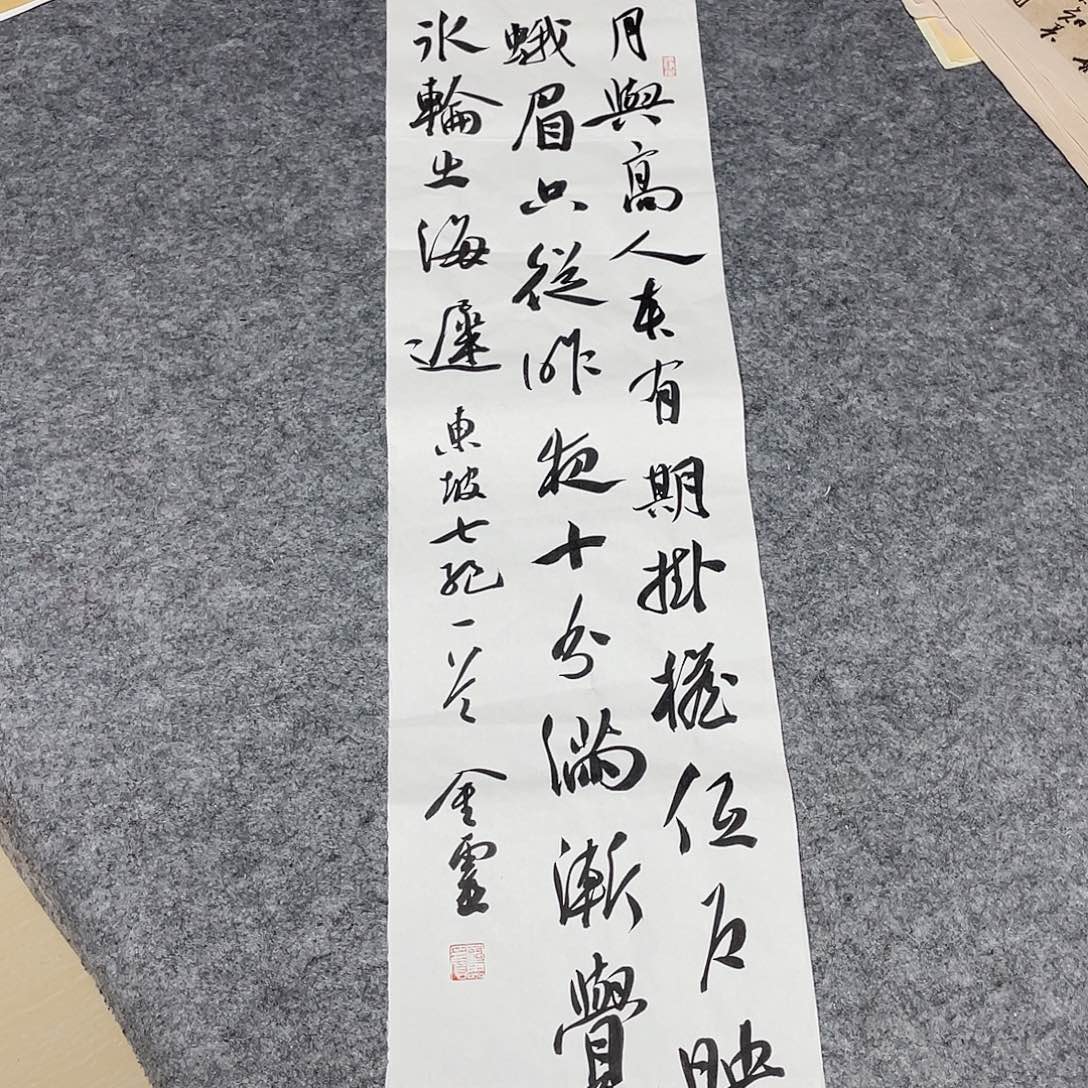 月與高人本有期掛檐低戶映
蛾眉只從昨夜十分滿漸覺
氷輪出海遲 東坡七絕一首 金靈